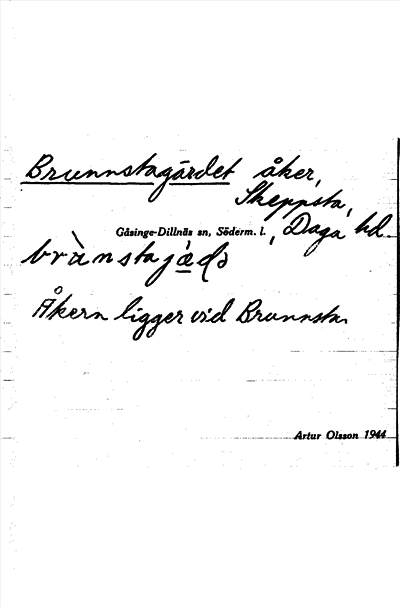 Brunnstagärdet åker,
Skeppsta,
Gåsinge-Dillnäs sn, Söderm. l., Daga hd.
Åkern ligger vid Brunnsta.
Artur Olsson 1944